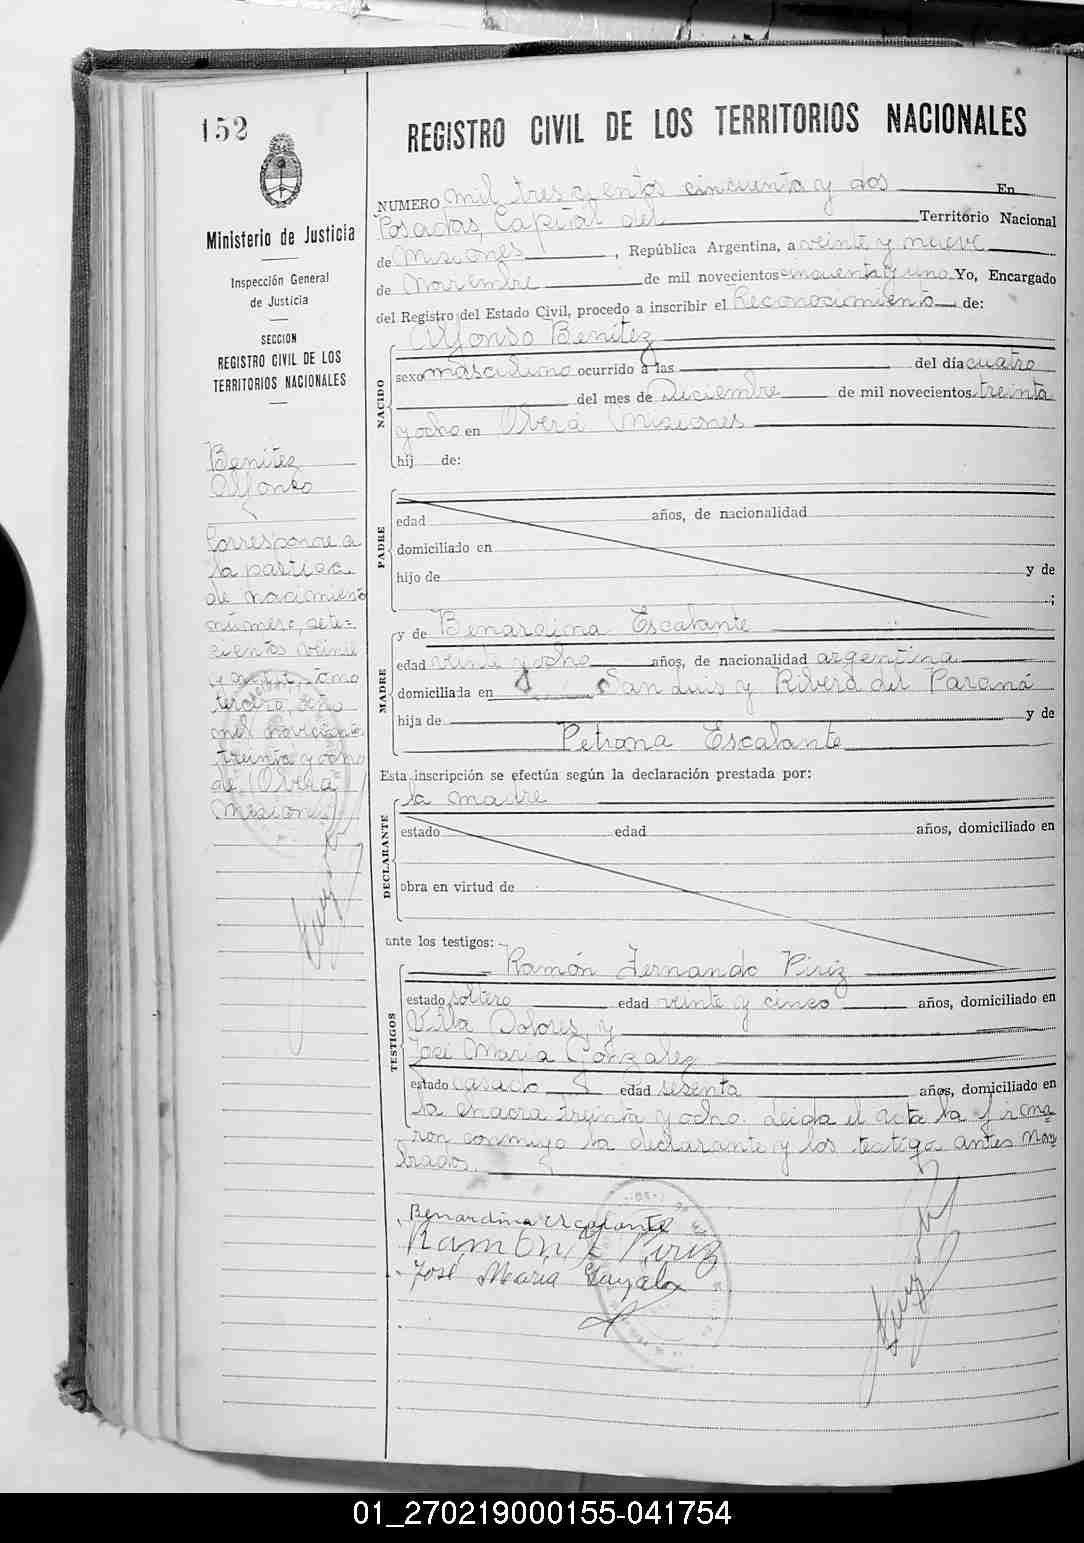 152
REGISTRO CIVIL DE LOS TERRITORIOS NACIONALES
Ministerio de Justicia
Inspección General
de Justicia
SECCION
REGISTRO CIVIL DE LOS
TERRITORIOS NACIONALES
Benítez
Alfonso
Corresponde a
la partida
de nacimiento
número, sete=
cientos veinte
tomo
tercero, año
mil novecientos
treinta y ocho
de Oberá
Misiones
NUMERO mil trescientos cincuenta y dos En
Posadas, Capital del Territorio Nacional
de Misiones, República Argentina, a veinte y nueve
de Noviembre de mil novecientos cincuenta y uno Yo, Encargado
del Registro del Estado Civil, procedo a inscribir el Reconocimiento de:
NACIDO
Alfonso Benítez
sexo masculino ocurrido a las del día cuatro
del mes de Diciembre de mil novecientos treinta
y ocho en Oberá Misiones
hij de:
PADRE
edad años, de nacionalidad
domiciliado en
hijo de y de
;
MADRE
y de Benardina Escalante
edad veinte y ocho años, de nacionalidad argentina
domiciliada en San Luis y Rivera del Paraná
hija de y de
Petrona Escalante
Esta inscripción se efectúa según la declaración prestada por:
DECLARANTE
la madre
estado edad años, domiciliado en
obra en virtud de
ante los testigos:
TESTIGOS
Ramón Fernando Piriz
estado soltero edad veinte y cinco años, domiciliado en
Villa Dolores, y
José María Gonzalez
estado casado edad sesenta años, domiciliado en
la chacra treinta y ocho. Leida el acta la firma=
ron conmigo la declarante y los testigos antes nom
brados.
Benardina escalante
Ramón F Piriz
José María
01_270219000155-041754